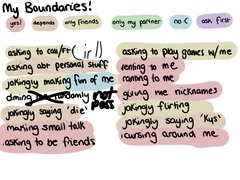 My Boundaries!
yes! depends only friends only my partner no :( ask first
asking to call/ft (irl)
asking abt personal stuff
jokingly making fun of me
dming randomly not pass
jokingly saying 'die'
making small talk
asking to be friends
asking to play games w/me
venting to me
ranting to me
giving me nicknames
jokingly flirting
jokingly saying 'kys'
cursing around me